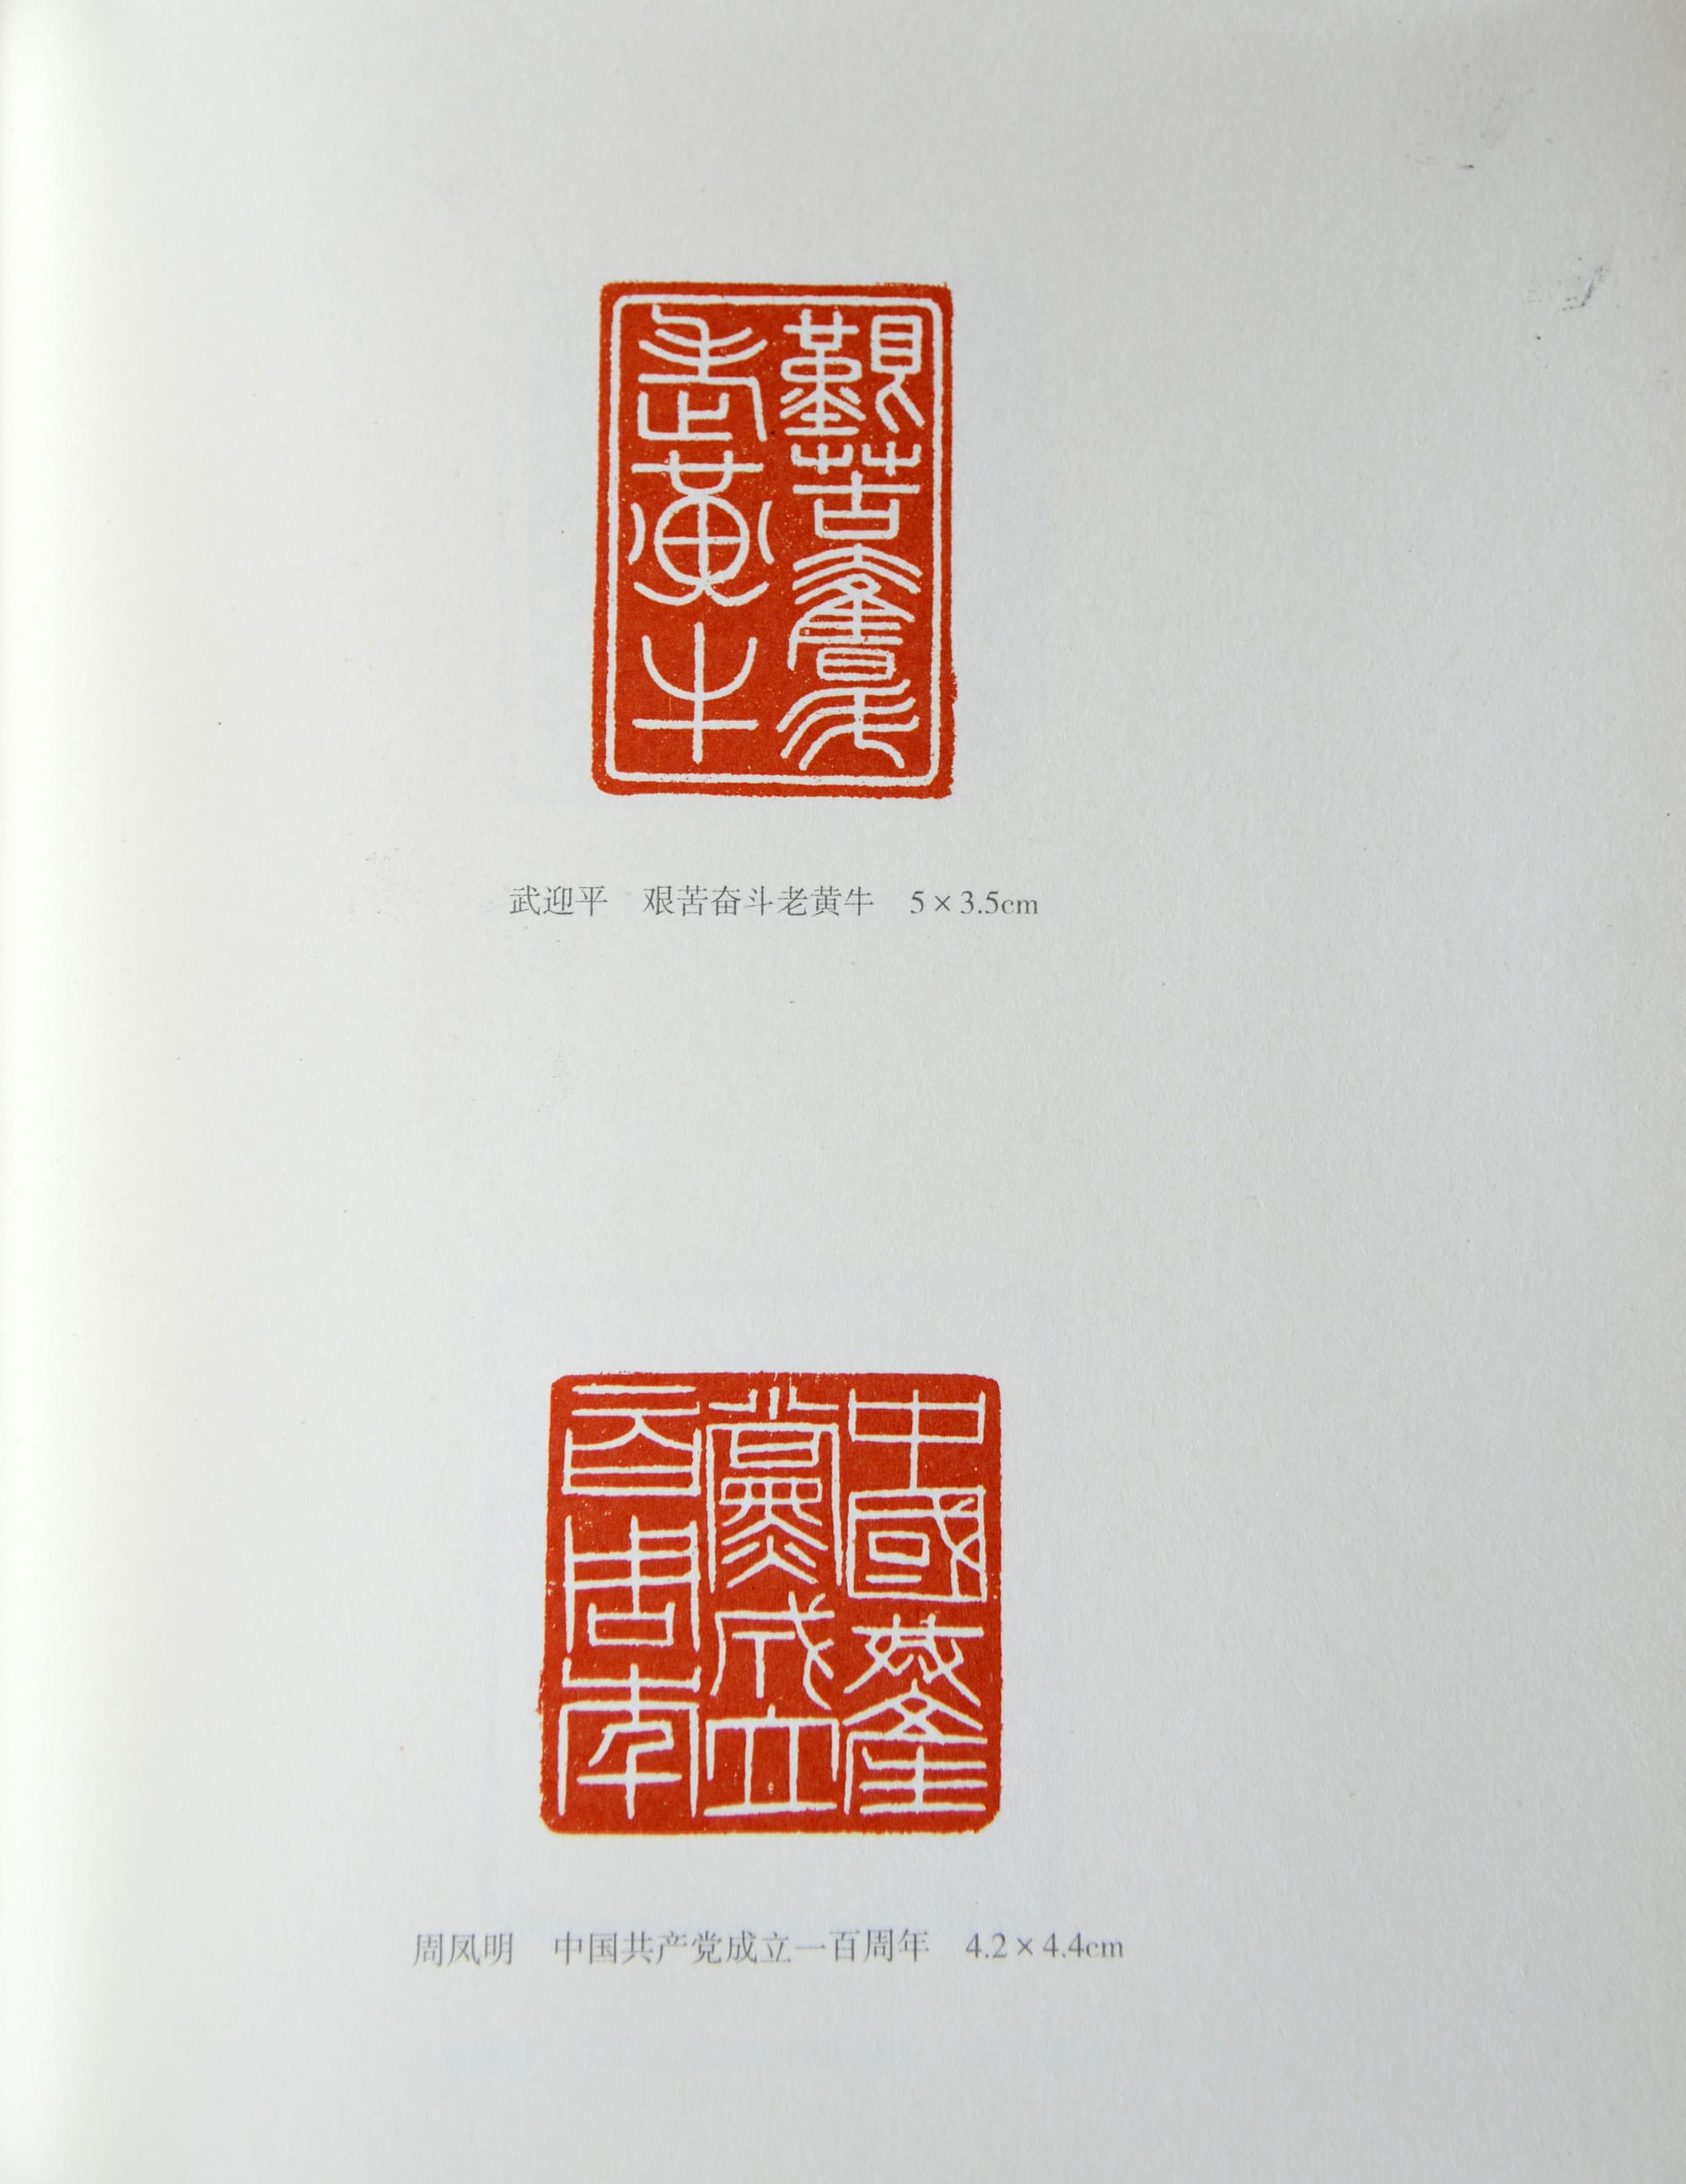 艱苦奮斗
老黃牛
武迎平 艰苦奋斗老黄牛 5×3.5cm
中國共產
黨成立一
百周年
周凤明 中国共产党成立一百周年 4.2×4.4cm